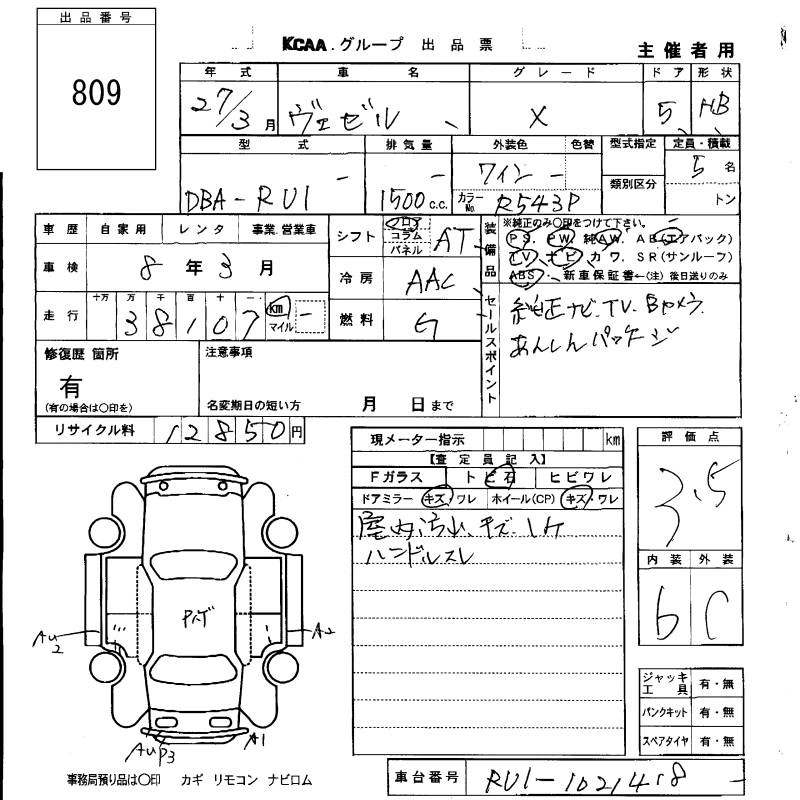 出品番号
809
KCAA.グループ 出品票
主催者用
年式 車名 グレード ドア 形状
27/3月 ヴェゼル X 5 HB
型式 排気量 外装色 色替 型式指定 定員・積載
DBA-RU1 - 1500c.c. ワイン - カラーNo. R543P 類別区分 5名 トン
車歴 自家用 レンタ 事業.営業車
車検 8年3月
走行 十万 万 千 百 十 一
38107 km マイル -
シフト フロア コラム パネル AT
冷房 AAC
燃料 G
装備品
※純正のみ〇印をつけて下さい。
PS. PW. 純AW. AB(エアバック)
TV. ナビ カワ. SR(サンルーフ)
ABS. 新車保証書←(注)後日送りのみ
セールスポイント
純正ナビ.TV.Bカメラ
あんしんパッケージ
修復歴 箇所
有
(有の場合は〇印を)
注意事項
名変期日の短い方 月 日まで
リサイクル料 12850円
現メーター指示 km
【査定員記入】
Fガラス トビ石 ヒビワレ
ドアミラー キズ.ワレ ホイール(CP) キズ・ワレ
屋内汚れ、キズ.コゲ
ハンドルスレ
評価点
3.5
内装 外装
b C
ジャッキ工具 有・無
パンクキット 有・無
スペアタイヤ 有・無
AU2
A2
AUP3
A1
事務局預り品は〇印 カギ リモコン ナビロム
車台番号 RU1-1021418